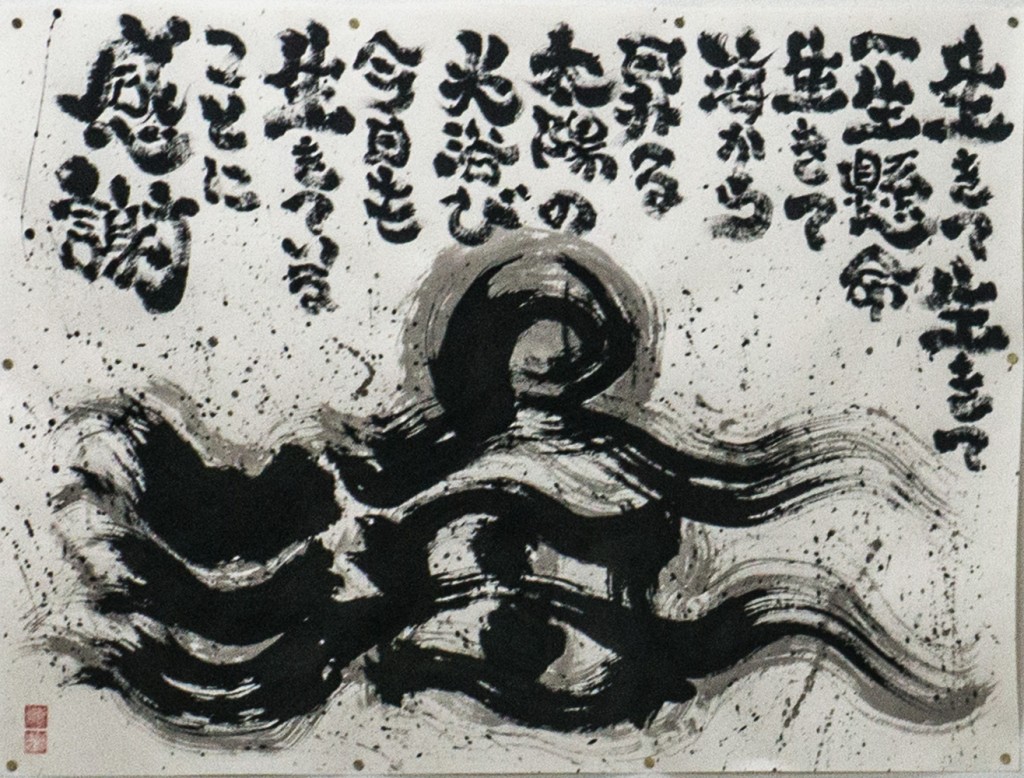 生きて生きて
一生懸命
生きて
海から
昇る
太陽の
光浴び
今日も
生きている
ことに
感謝